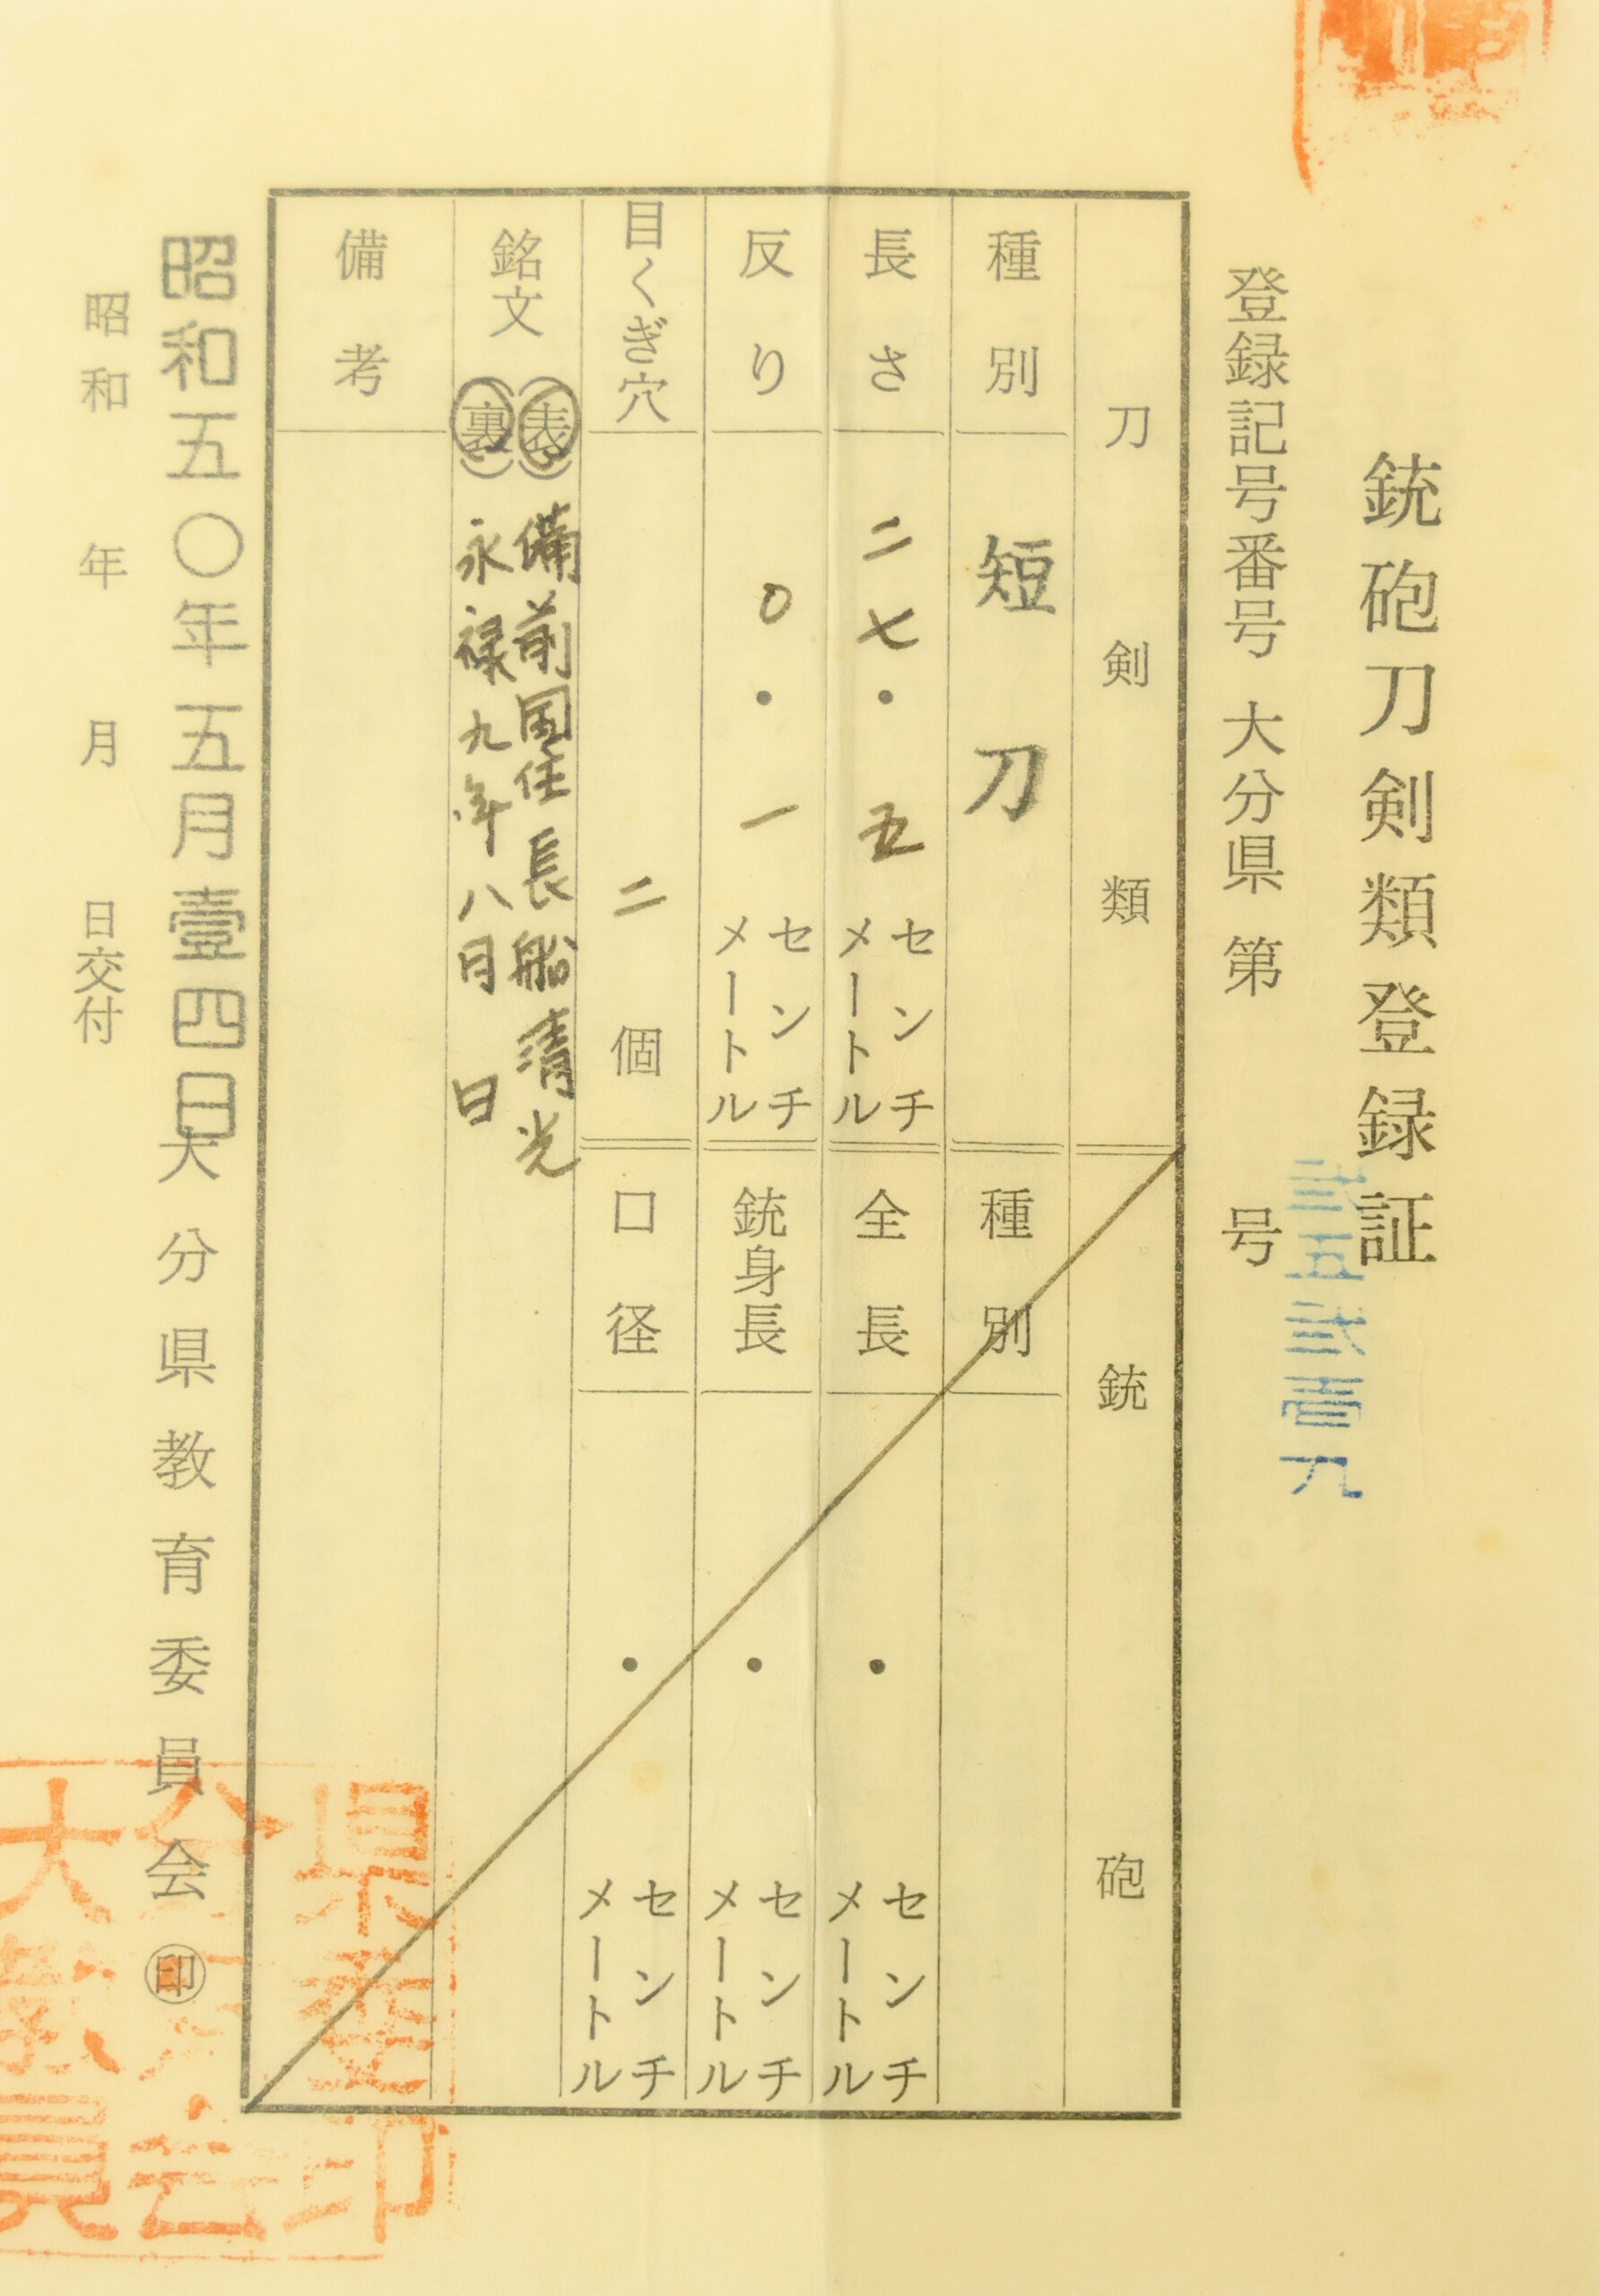 銃砲刀剣類登録証
登録記号番号 大分県 第 号
弐五弐壹九
刀剣類
種別 短刀
長さ 二七・五 センチメートル
反り 0・一 センチメートル
目くぎ穴 二 個
銘文 (表) 備前国住長船清光
(裏) 永禄九年八月 日
備考
銃砲
種別
全長 ・ センチメートル
銃身長 ・ センチメートル
口径 ・ センチメートル
昭和五〇年五月壹四日
大分県教育委員会 ㊞
昭和 年 月 日交付
県委印
分育会
大教員